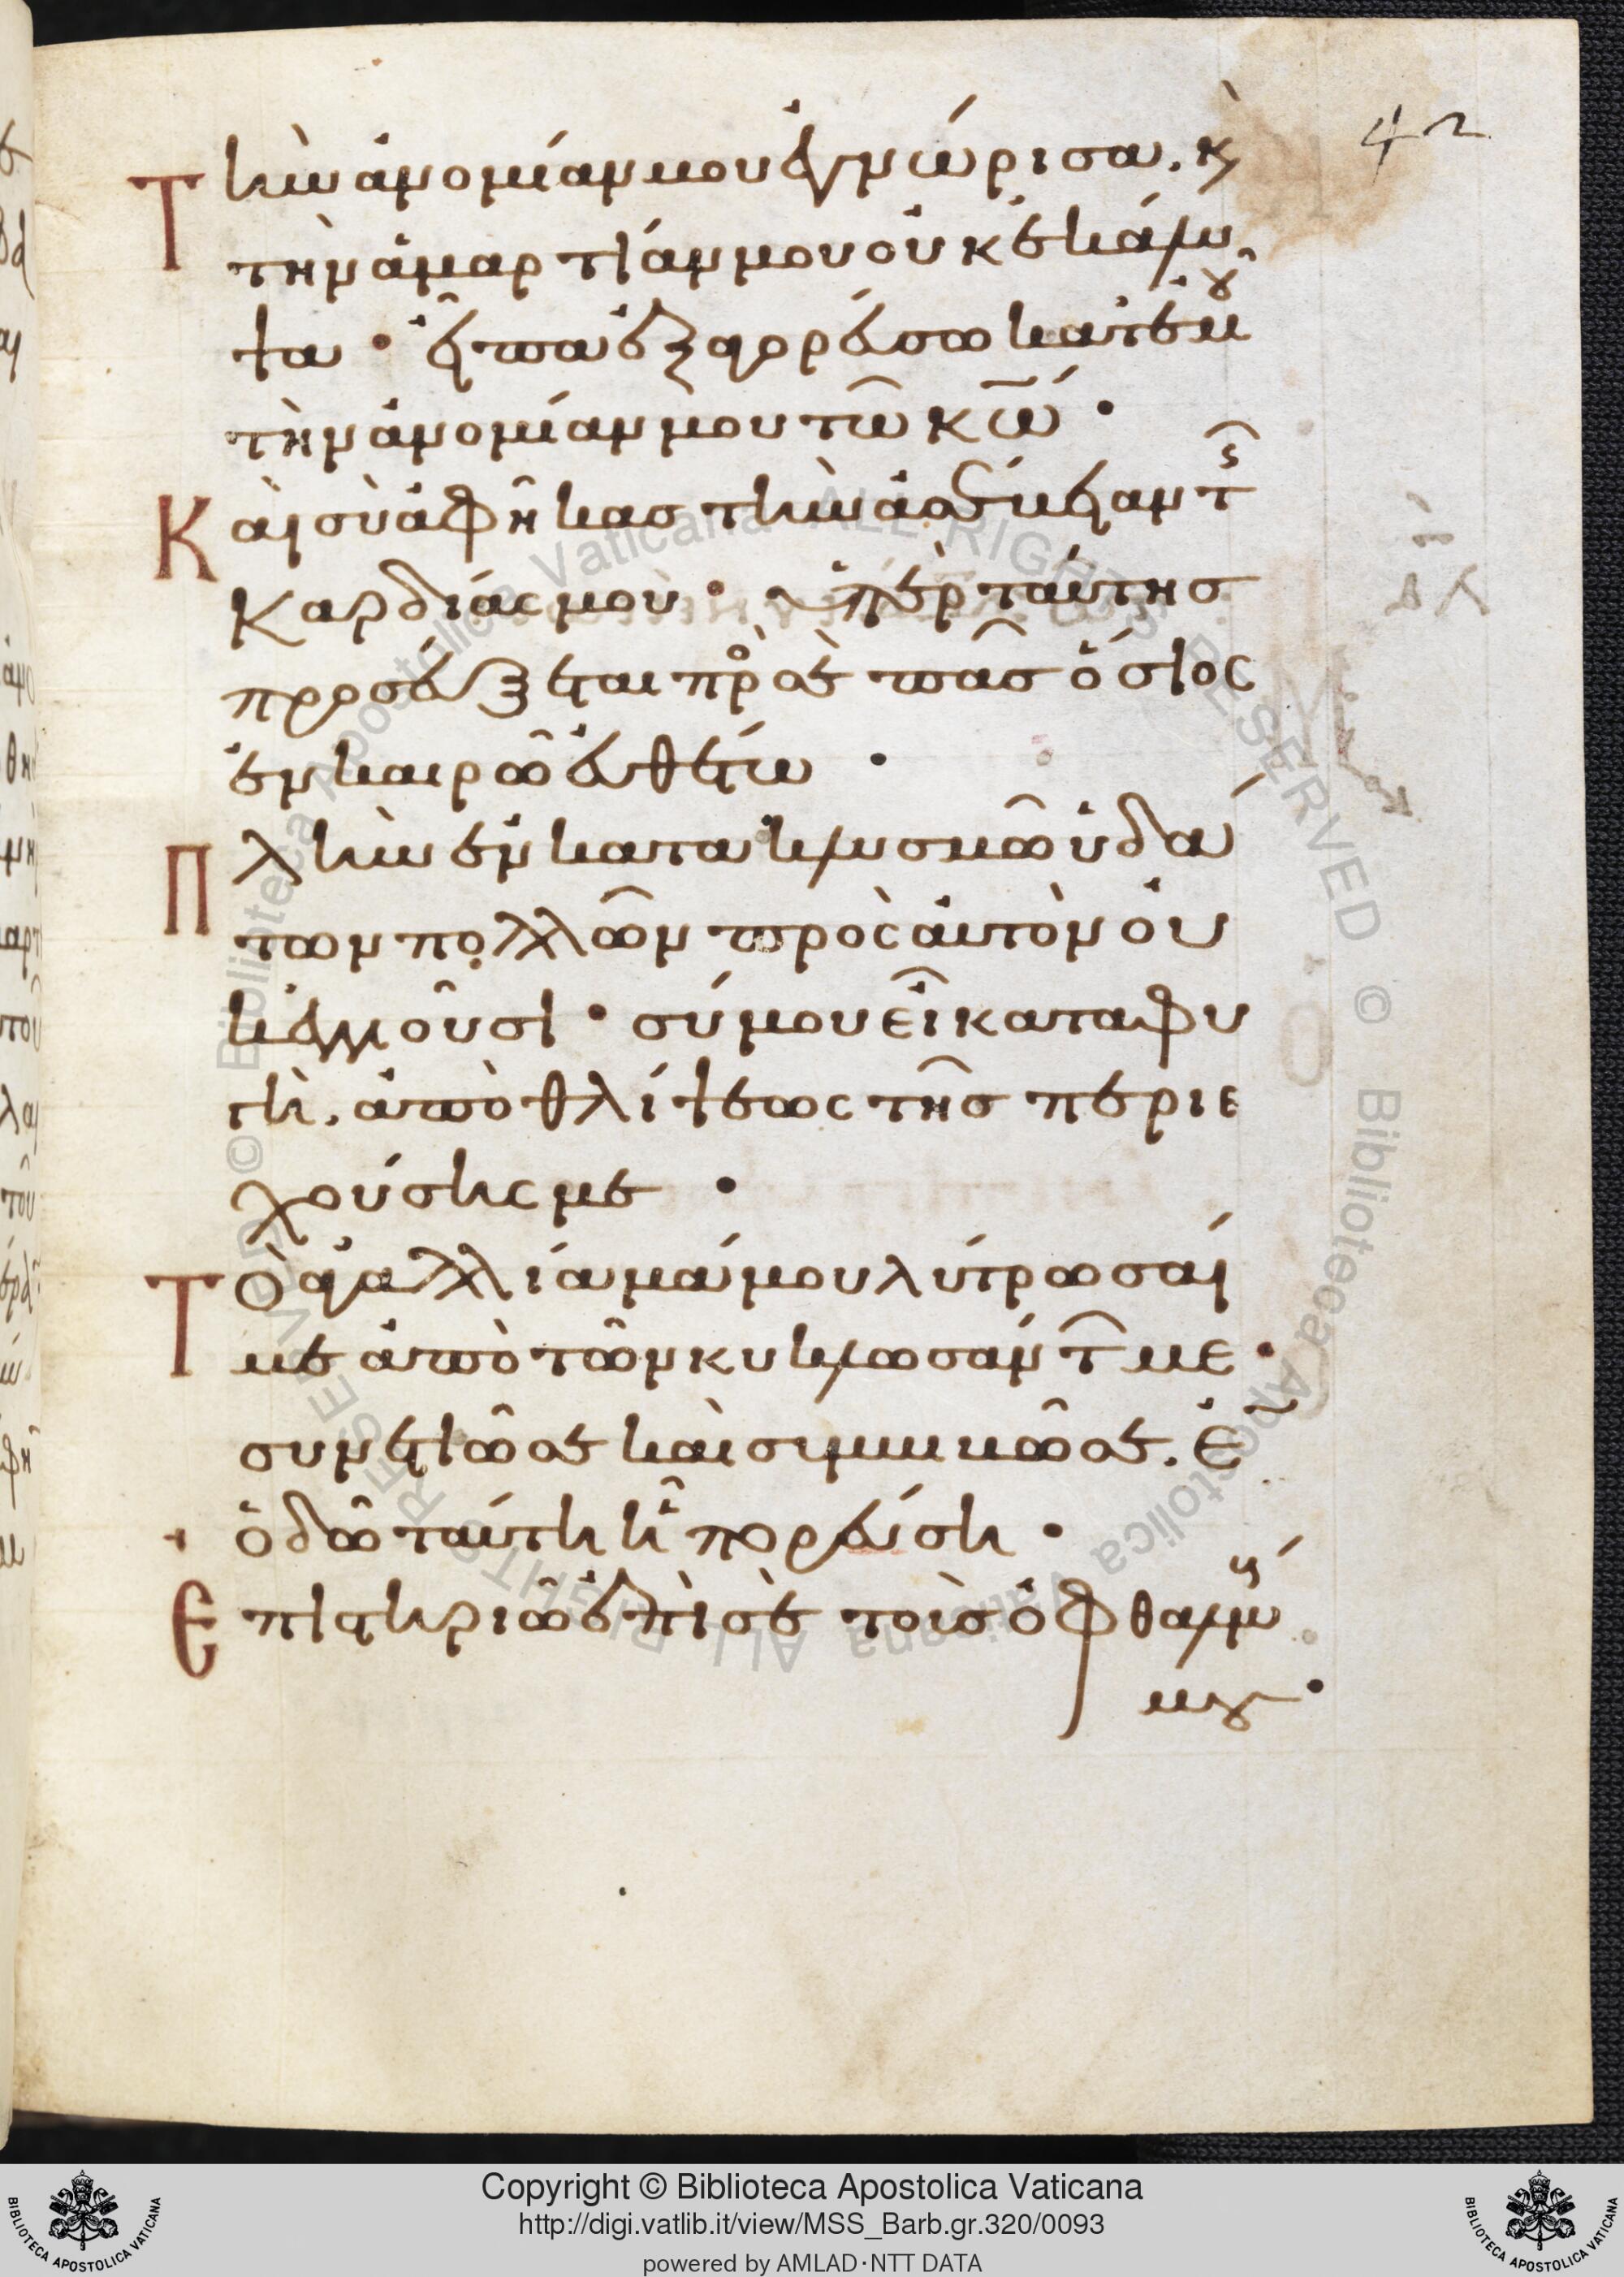 42
Τ ὴν ἀνομίαν μου ἐγνώρισα, κ̀
τὴν ἁμαρτίαν μου οὐκ ἐκάλυ
ψα · εἶπα ἐξαγορεύσω κατ' ἐμȣ̂
τὴν ἀνομίαν μου τῶ κ̅ω̅ ·
Κ αὶ σὺ ἀφῆκας τὴν ἀσέβειαν τῆς
καρδίας μου · ὑπὲρ ταύτης
προσεύξεται πρός σε πᾶς ὅσιος
ἐν καιρῶ εὐθέτω ·
Π λὴν ἐν κατακλυσμῶ ὑδά
των πολλῶν πρὸς αὐτὸν οὐ
κ ἐγγιοῦσι · σύ μου εἶ καταφυ
γὴ, ἀπὸ θλίψεως τῆς περιε
χούσης με ·
Τ ὸ ἀγαλλίαμά μου λύτρωσαί
με ἀπὸ τῶν κυκλωσάντων με ·
συνετιῶ σε καὶ συμβιβῶ σε, ἐν
ὁδῶ ταύτη ἧ πορεύση ·
Ε πιστηριῶ ἐπὶ σὲ τοὺς ὀφθαλμούς
μȣ ·
Copyright © Biblioteca Apostolica Vaticana
http://digi.vatlib.it/view/MSS_Barb.gr.320/0093
powered by AMLAD·NTT DATA
BIBLIOTECA APOSTOLICA VATICANA
BIBLIOTECA APOSTOLICA VATICANA